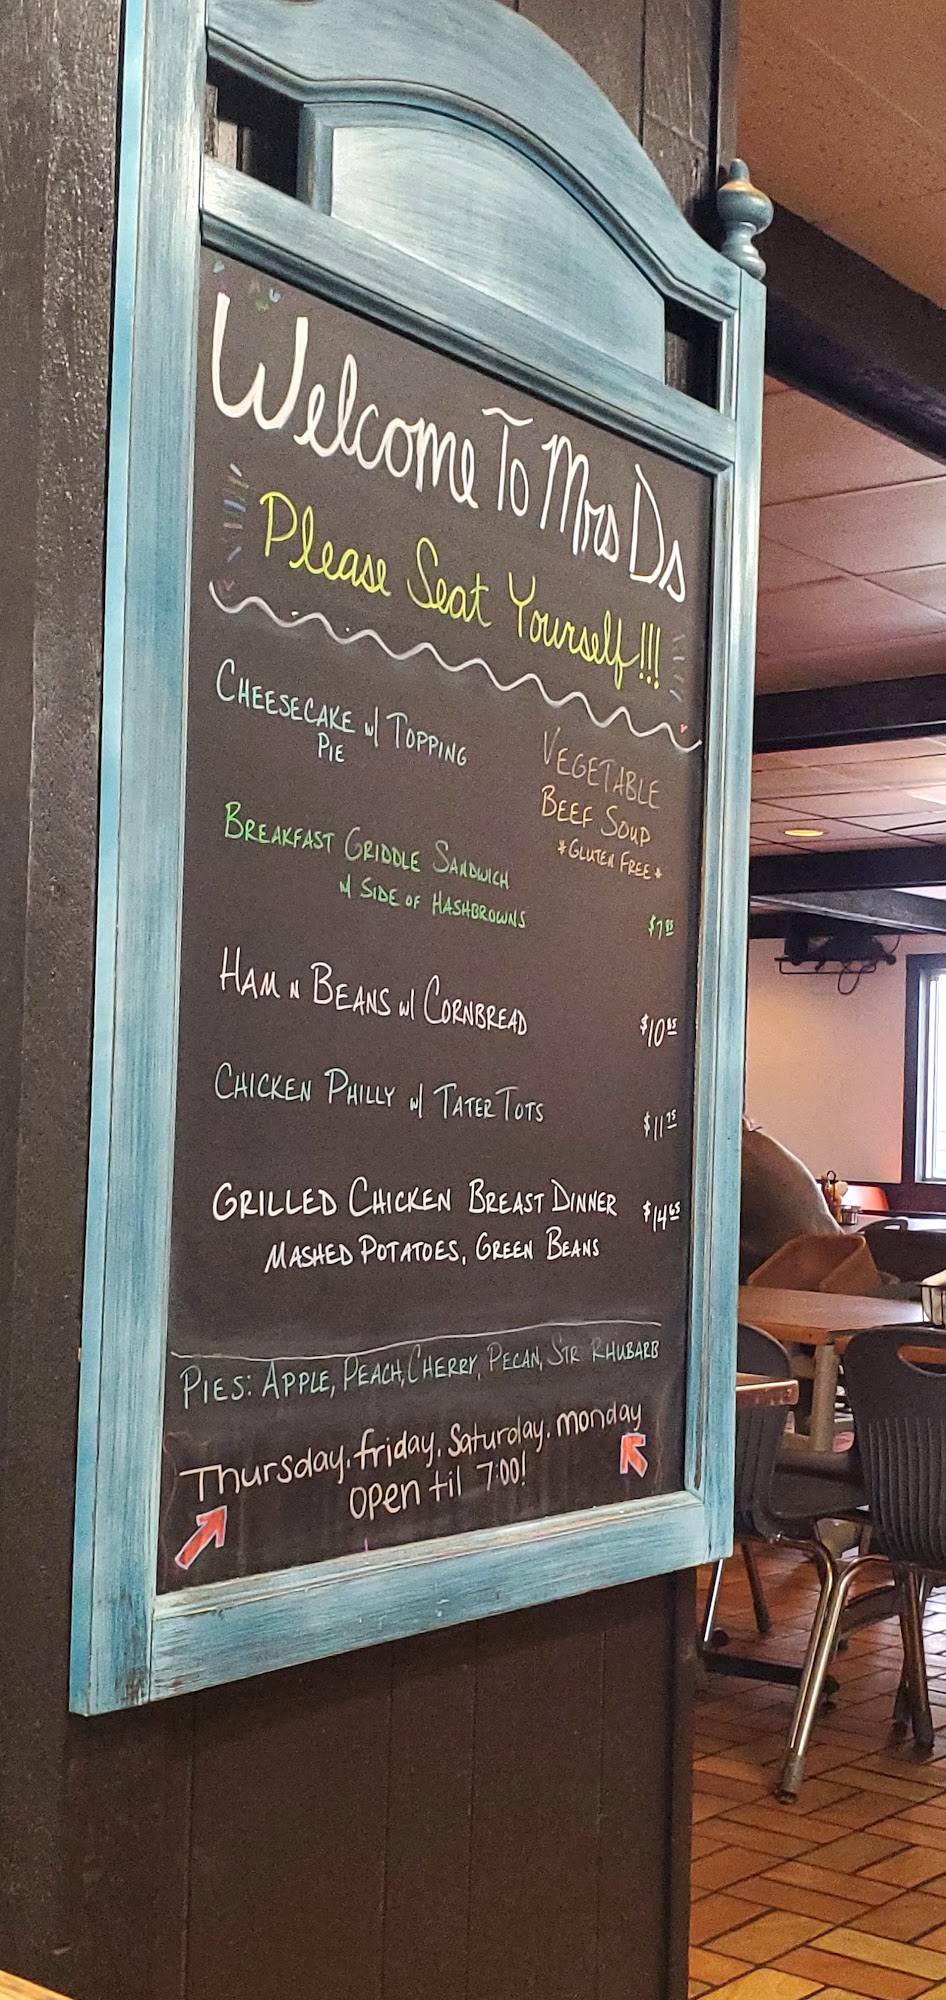 Welcome To Mrs Ds
Please Seat Yourself!!!
CHEESECAKE w/ TOPPING
PIE
VEGETABLE
BEEF SOUP
*GLUTEN FREE*
BREAKFAST GRIDDLE SANDWICH
w/ SIDE OF HASHBROWNS $7
HAM N BEANS w/ CORNBREAD $10
CHICKEN PHILLY w/ TATER TOTS $11
GRILLED CHICKEN BREAST DINNER $14
MASHED POTATOES, GREEN BEANS
PIES: APPLE, PEACH, CHERRY, PECAN, STR RHUBARB
Thursday, friday, Saturday, monday
open til 7:00!